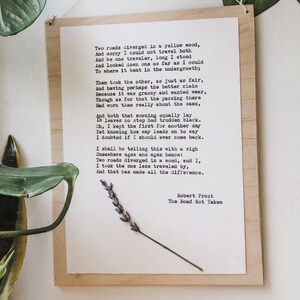 Two roads diverged in a yellow wood,
And sorry I could not travel both
And be one traveler, long I stood
And looked down one as far as I could
To where it bent in the undergrowth;
Then took the other, as just as fair,
And having perhaps the better claim
Because it was grassy and wanted wear,
Though as for that the passing there
Had worn them really about the same,
And both that morning equally lay
In leaves no step had trodden black.
Oh, I kept the first for another day
Yet knowing how way leads on to way
I doubted if I should ever come back.
I shall be telling this with a sigh
Somewhere ages and ages hence:
Two roads diverged in a wood, and I,
I took the one less traveled by,
And that has made all the difference.
Robert Frost
The Road Not Taken